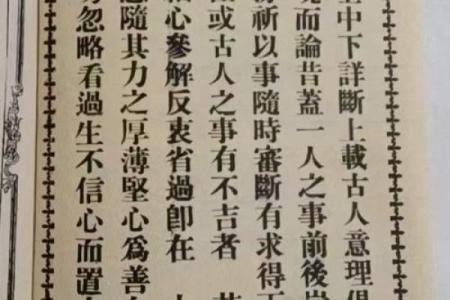 中下詳斷上載古人意理俱
而論昔蓋一人之事前後
祈以事隨時審斷有求得
或古人之事有不吉者 若
心參解反衷省過卽在
隨其力之厚薄堅心為善
忽略看過生不信心而置